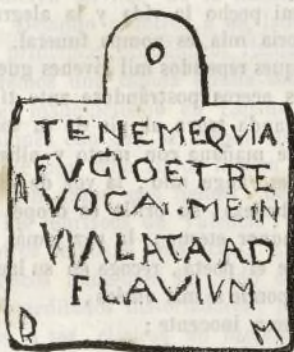 TENEMEQVIA
FVGIOETRE
VOCAI·MEIN
VIALATAAD
FLAVIVM
D M